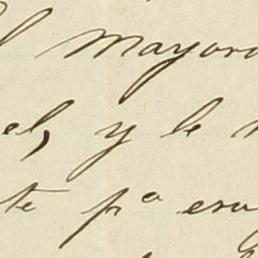 l Mayor
el, y le
te pª esa